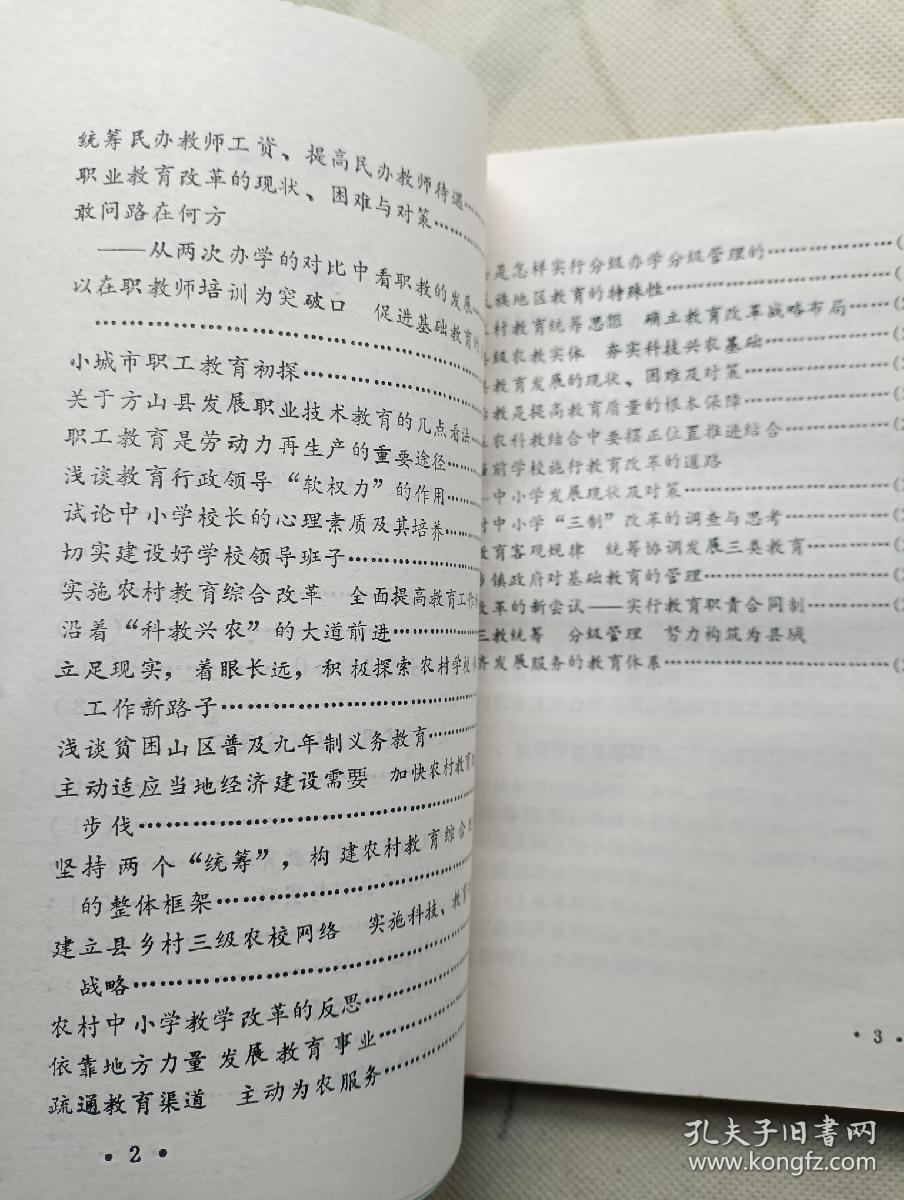 统筹民办教师工资、提高民办教师待遇……
职业教育改革的现状、困难与对策……
敢问路在何方
——从两次办学的对比中看职教的发展…
以在职教师培训为突破口 促进基础教育
……………………………………
小城市职工教育初探……………………
关于方山县发展职业技术教育的几点看法…
职工教育是劳动力再生产的重要途径……
浅谈教育行政领导“软权力”的作用……
试论中小学校长的心理素质及其培养……
切实建设好学校领导班子………………
实施农村教育综合改革 全面提高教育工作
沿着“科教兴农”的大道前进……………
立足现实，着眼长远，积极探索农村学校
工作新路子…………………………
浅谈贫困山区普及九年制义务教育………
主动适应当地经济建设需要 加快农村教育
步伐……………………………………
坚持两个“统筹”，构建农村教育综合
的整体框架…………………………
建立县乡村三级农校网络 实施科技、教育
战略……………………………………
农村中小学教学改革的反思……………
依靠地方力量 发展教育事业……………
疏通教育渠道 主动为农服务……………
• 2 •
是怎样实行分级办学分级管理的………………(
族地区教育的特殊性……………………………(
村教育统筹思想 确立教育改革战略布局………(
级农教实体 夯实科技兴农基础…………………(
教育发展的现状、困难及对策……………………(
教是提高教育质量的根本保障……………………(
农科教结合中要摆正位置推进结合………………(
前学校施行教育改革的道路
中小学发展现状及对策……………………………(
村中小学“三制”改革的调查与思考……………(
教育客观规律 统筹协调发展三类教育…………(
乡镇政府对基础教育的管理………………………(
改革的新尝试——实行教育职责合同制…………(
三教统筹 分级管理 努力构筑为县域
济发展服务的教育体系……………………………(
• 3 •
孔夫子旧书网
www.kongfz.com